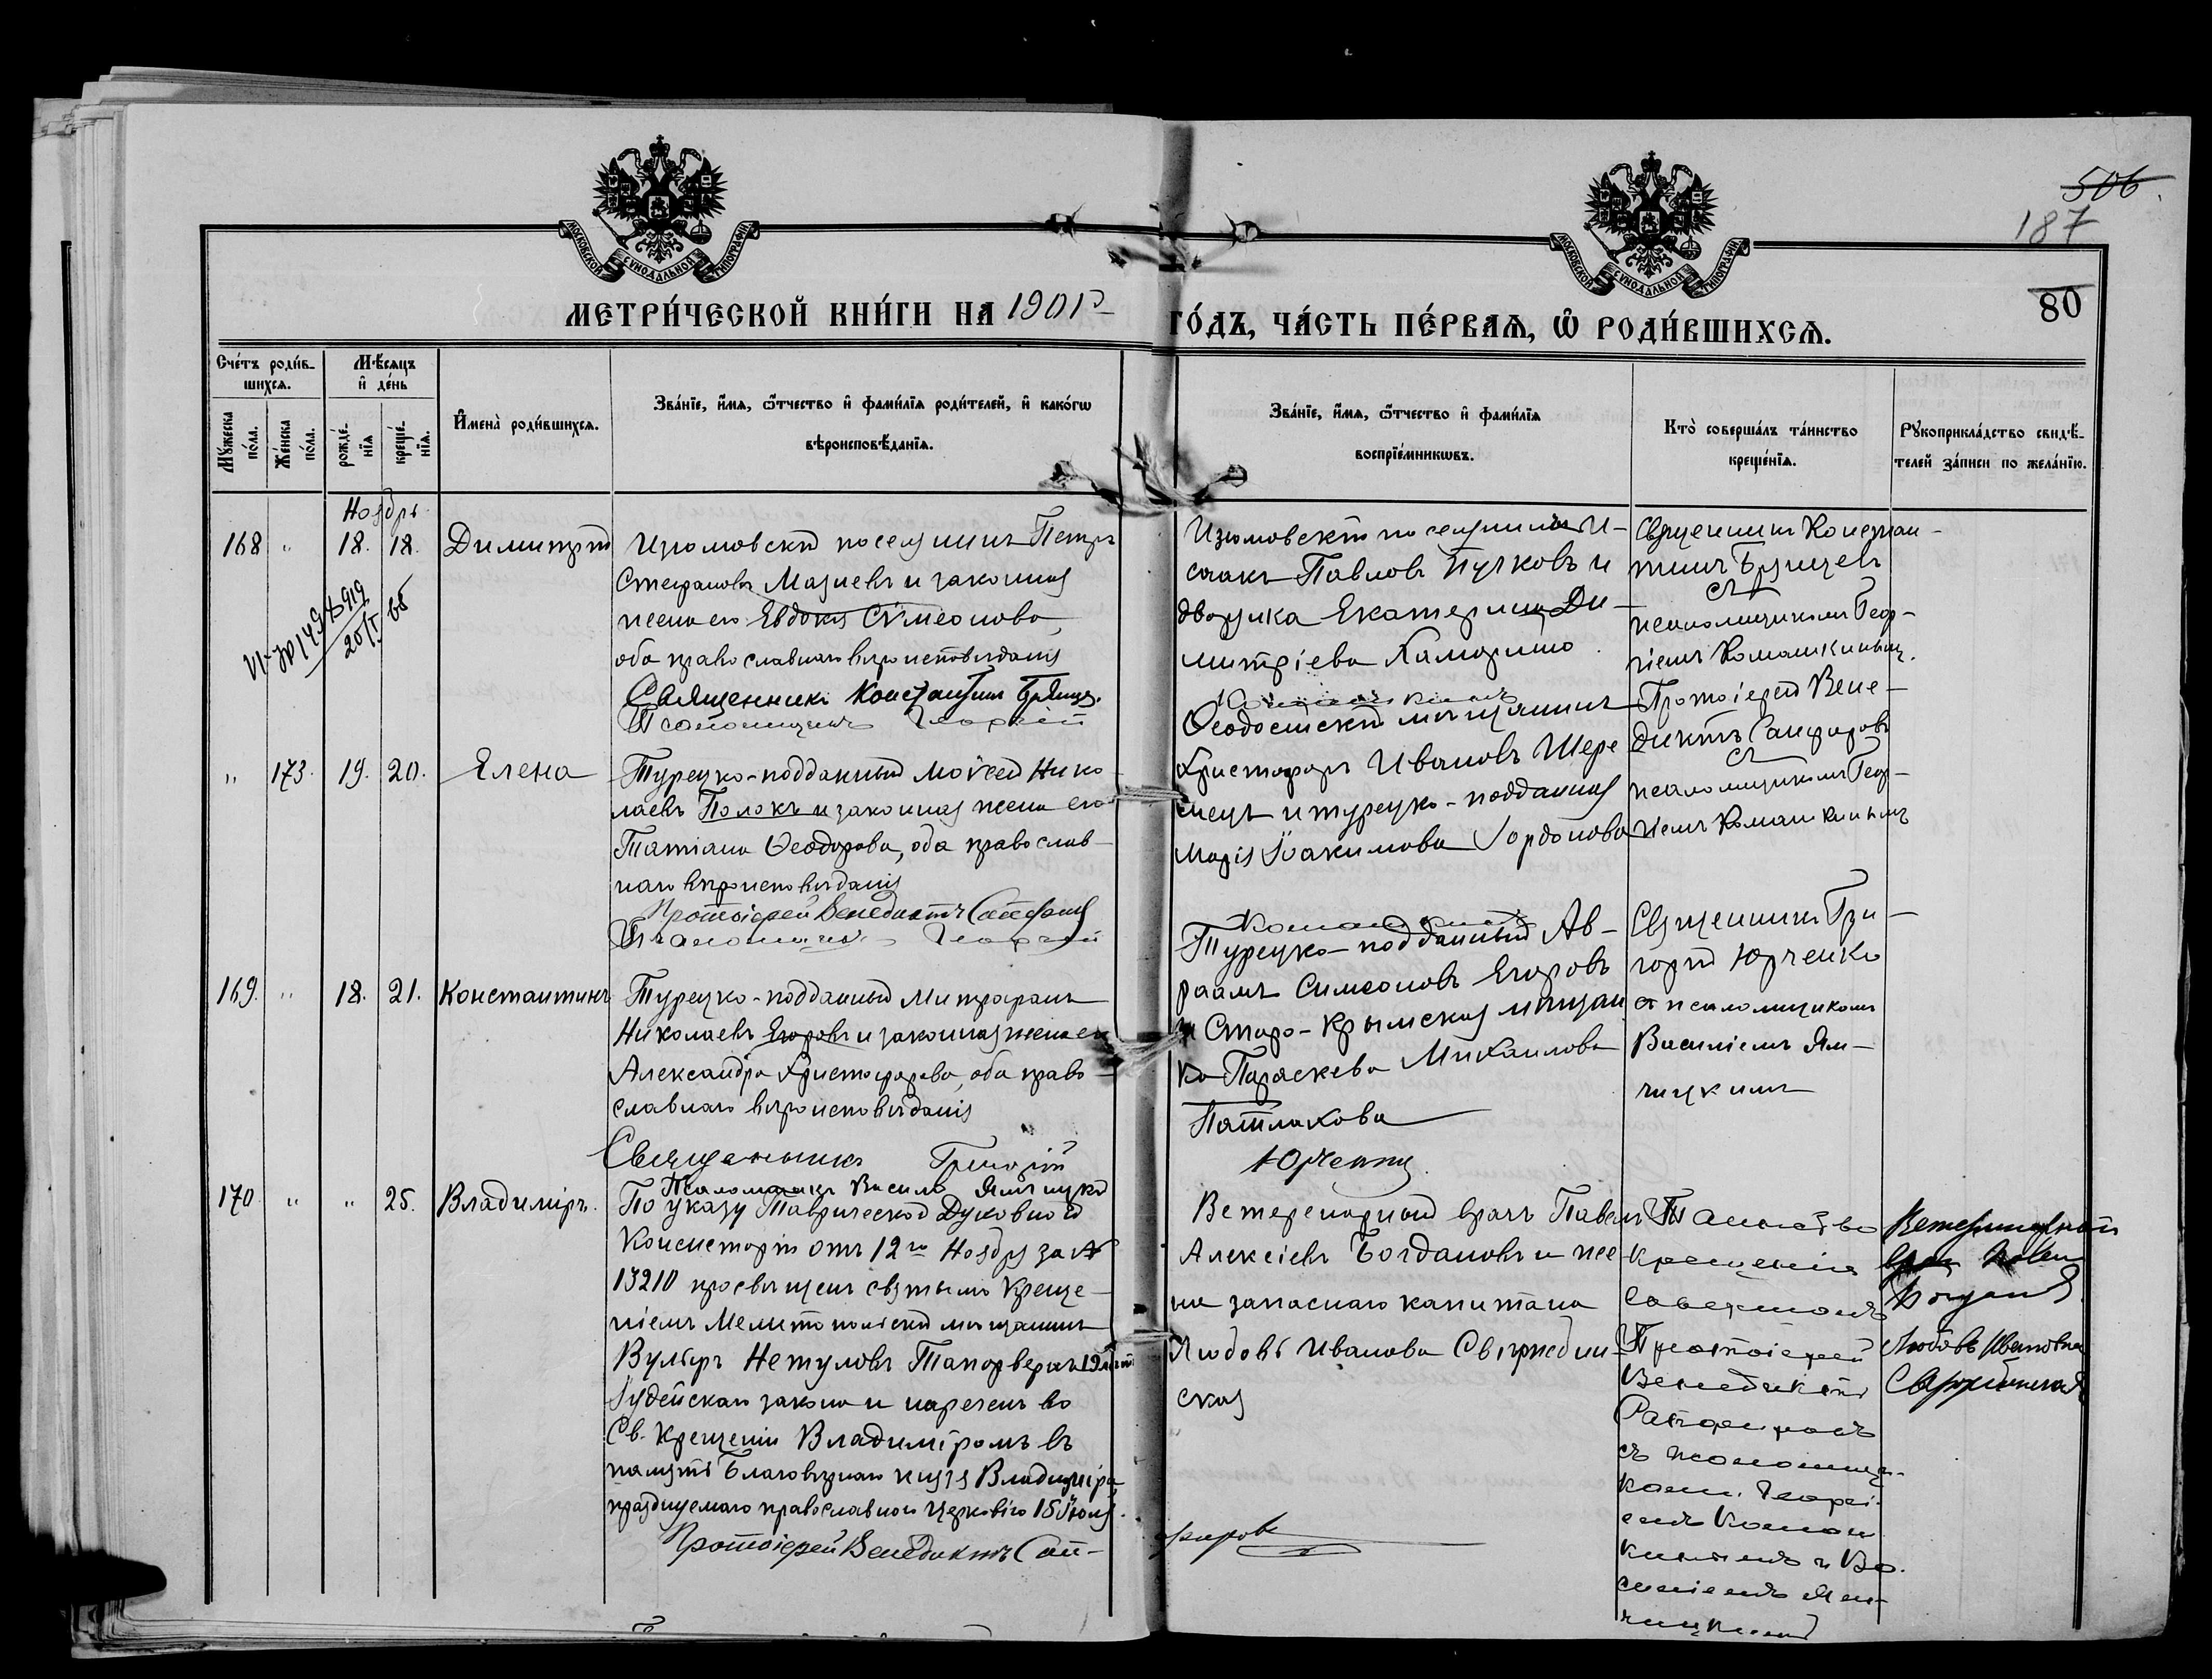 506
187
80
МОСКОВСКОЙ СУНОДАЛЬНОЙ ТИПОГРАФІИ
МОСКОВСКОЙ СУНОДАЛЬНОЙ ТИПОГРАФІИ
МЕТРИ́ЧЕСКОЙ КНИ́ГИ НА 1901 ГО́ДЪ, ЧА́СТЬ ПЕ́РВАѦ, Ѡ҆ РОДИ́ВШИХСѦ.
Счéтъ роди́в-
шихсѧ.
Мꙋ́жеска
по́ла.
Же́нска
по́ла.
Мѣ́сѧцъ
и҆ де́нь
рожде́-
нїѧ
креще́-
нїѧ.
И҆мена̀ роди́вшихсѧ.
Зва́нїе, и҆́мѧ, ѻ҆́тчество и҆ фами́лїѧ роди́телей, и҆ како́гѡ
вѣроисповѣ́данїѧ.
Зва́нїе, и҆́мѧ, ѻ҆́тчество и҆ фами́лїѧ
воспрїе́мникѡвъ.
Кто̀ соверша́лъ та́инство
креще́нїѧ.
Рꙋкоприкла́дство свидѣ́-
телей за́писи по жела́нїю.
Ноябрь
168 " 18. 18. Димитрій
Изюмовскій поселянинъ Петръ
Стефановъ Мазневъ и законная
жена его Евдокія Симеонова,
оба православнаго вѣроисповѣданія
Священникъ Константинъ Брянцев.
Псаломщикъ Георгій
Изюмовскій поселянинъ И-
саакъ Павловъ Пучковъ и
дворянка Екатерина Ди-
митріева
Священникъ Констан-
тинъ Брянцевъ
съ
псаломщикомъ Геор-
гіемъ Комашкинымъ.
" 173. 19. 20. Елена
Турецко-подданный Моѵсей Нико-
лаевъ Полокъ и законная жена его
Татіана Ѳеодорова, оба православ-
наго вѣроисповѣданія
Протоіерей Венедиктъ
Псаломщикъ Георгій
Ѳеодосійскій мѣщанинъ
Христофоръ Ивановъ Шере
мецъ и турецко-подданная
Марія Іоакимова Гордонова
Протоіерей Вене-
диктъ
съ
псаломщикомъ Геор-
гіемъ Комашкинымъ
169. " 18. 21. Константинъ
Турецко-подданный Митрофанъ
Николаевъ Егоровъ и законная жена его
Александра Христофорова, оба право-
славнаго вѣроисповѣданія
Священникъ Григорій
Псаломщикъ
Турецко-подданный Ав-
раамъ Симеоновъ Егоровъ
и Старо-Крымская мѣщан
ка Параскева Михаилова
Патлакова
Юрченко
Священникъ Гри-
горій Юрченко
съ псаломщикомъ
Василіемъ Ям-
чицкимъ
170 " " 25. Владиміръ.
По указу Таврической Духовной
Консисторіи отъ 12го Ноября за №
13210 просвѣщенъ святымъ Креще-
ніемъ Мелитопольскій мѣщанинъ
Вульфъ Нетуловъ Тапорверъ 19 лѣтъ
Іудейскаго закона и нареченъ во
Св. Крещеніи Владиміромъ въ
память Благовѣрнаго князя Владиміра,
празднуемаго православною Церковію 15 Іюля.
Протоіерей Венедиктъ Сан-
фировъ
Ветеренарный врачъ Павелъ
Алексіевъ Богдановъ и же-
на запаснаго капитана
Любовь Иванова Свѣржедин-
ская
Таинство
крещенія
совершалъ
Протоіерей
Венедиктъ
съ псаломщи-
комъ Георгі-
емъ Комаш
кинымъ и Ва-
силіемъ Ям-
чицкимъ
Ветеринарный
врачъ Павелъ
Богдановъ
Любовь Ивановна